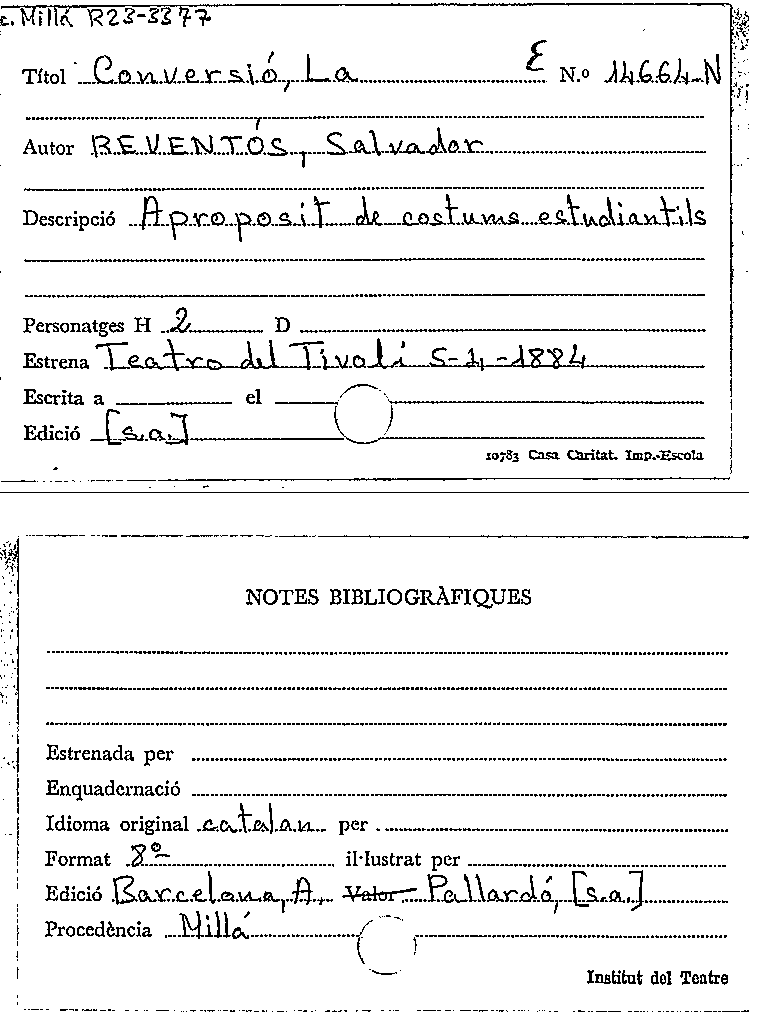 c. Millá R23-3377
Títol Conversió, La E N.º 14664-N
Autor REVENTÓS, Salvador
Descripció Aproposit de costums estudiantils
Personatges H 2 D
Estrena Teatro del Tívoli 5-4-1884
Escrita a el
Edició [s.a.]
10783 Casa Caritat. Imp.-Escola
NOTES BIBLIOGRÀFIQUES
Estrenada per
Enquadernació
Idioma original catalan per
Format 8º il·lustrat per
Edició Barcelona, A. Valor Pallardó, [s.a.]
Procedència Millá
Institut del Teatre